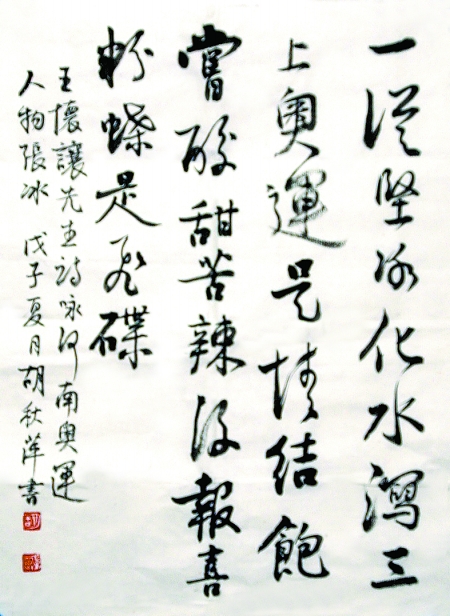 一從堅冰化水瀉三
上奥運是情結飽
嘗酸甜苦辣後報喜
粉蝶是飛碟
王懷讓先生詩咏河南奥運
人物張冰 戊子夏月胡秋萍書